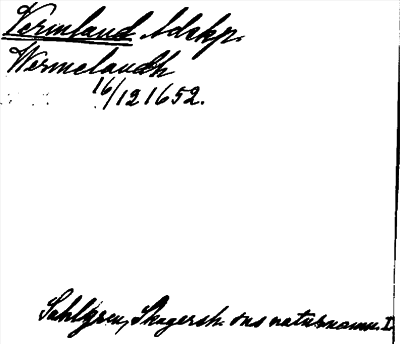 Vermland ldskp.
Wermelandh
16/12 1652.
Sahlgren, Skagersh. ons naturnamn I,